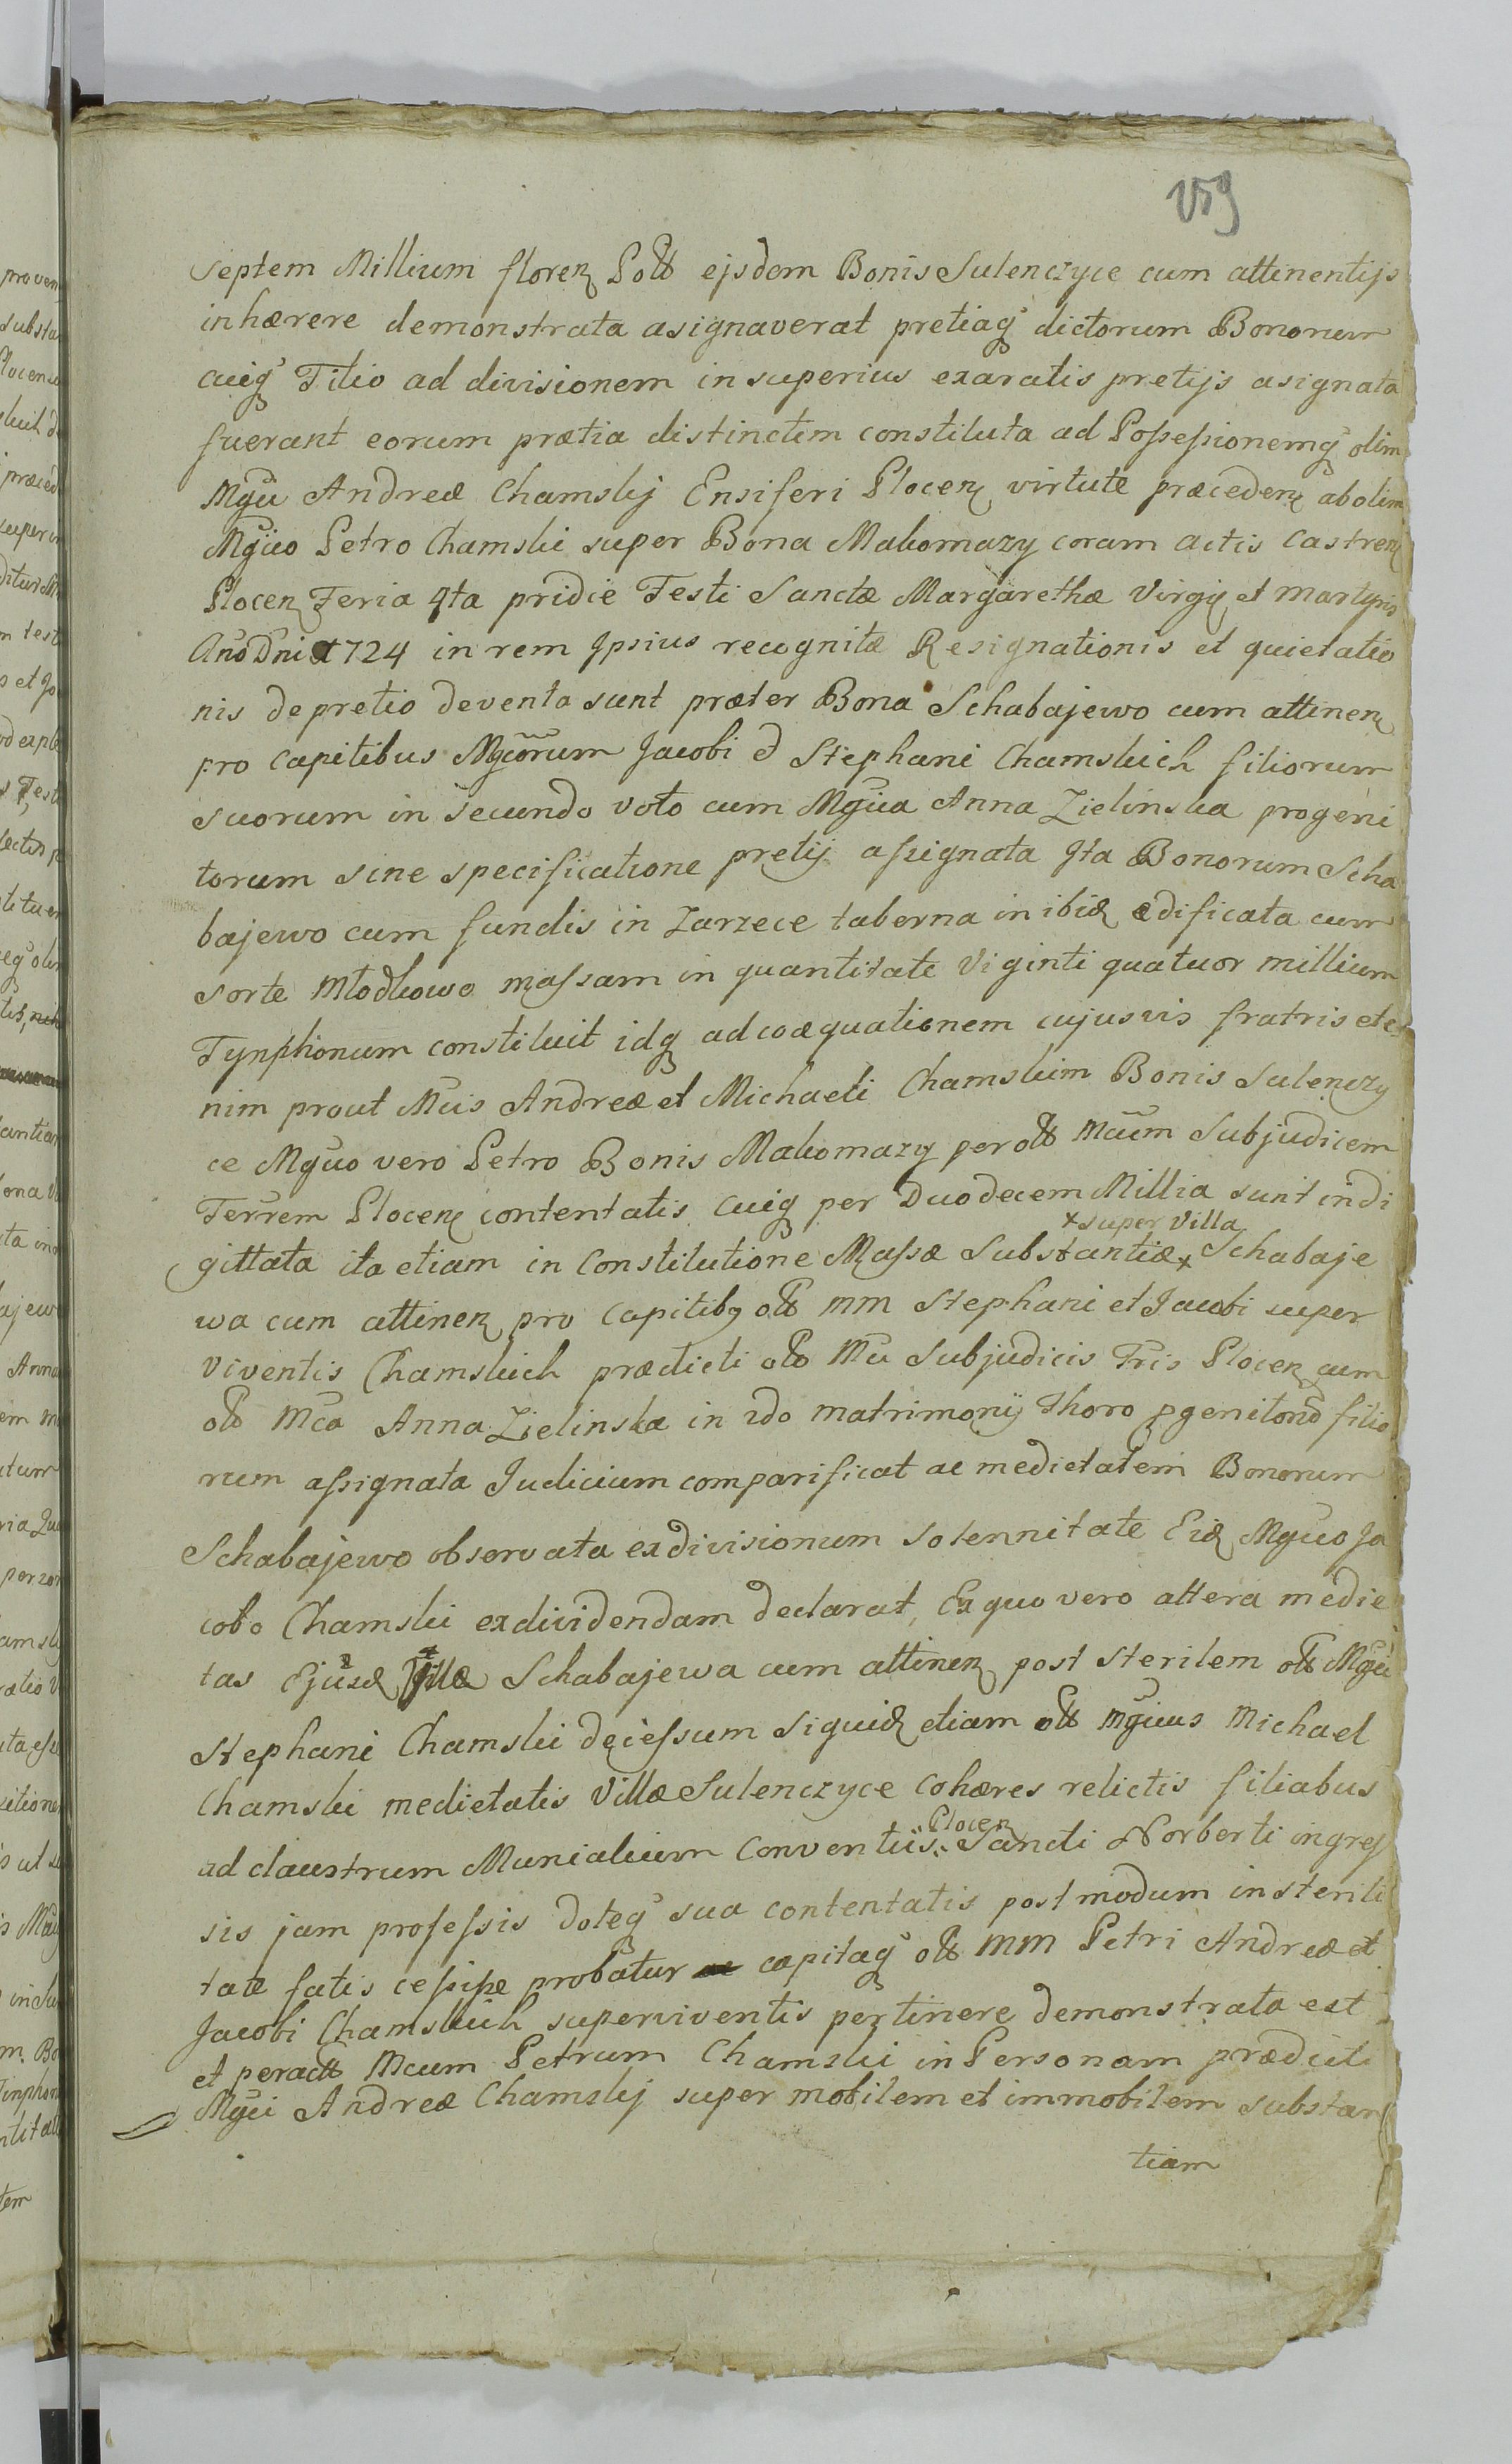 159
Septem Millium floren Poll ejsdem Bonis Sulenczyce cum attinentijs
inhærere demonstrata asignaverat pretiaq dictorum Bonorum
cuiq Filio ad divisionem in superius exaratis pretijs asignata
fuerant eorum prætia distinctim constituta ad Possessionemq olim
Mgci Andreæ Chamskij Ensiferi Plocen virtute præceden ab olim
Mgco Petro Chamski super Bona Makomazy coram actis Castren
Plocen Feria 4ta pridie Festi Sanctæ Margarethæ Virgis et Martyris
Ano Dni 1724 in rem Ipsius recognitæ Resignationis et quietatio
nis de pretio deventa sunt præter Bona Schabajewo cum attinen
pro capitibus Mgcorum Jacobi et Stephani Chamskich filiorum
suorum in secundo voto cum Mgca Anna Zielinska progeni
torum sine specificatione pretij assignata Ita Bonorum Scha
bajewo cum fundis in Zarzece taberna in ibid ædificata cum
sorte Młodkowo massam in quantitate Viginti quatuor millium
Tynphonum constituit idq ad coæquationem cujusvis fratris ete
nim prout Mcis Andreæ et Michaeli Chamskim Bonis Sulenczy
ce Mgco vero Petro Bonis Makomazy per olt Mcum Subjudicem
Terrem Plocen contentatis cuiq per Duodecem Millia sunt indi
gittata ita etiam in Constitutione Massæ Substantiæ x Schabaje
x super Villa
wa cum attinen pro capitibq olt MM Stephani et Jacobi super
viventis Chamskich prædicti olt Mci Subjudicis Tris Plocen cum
olt Mca Anna Zielinska in 2do matrimonij thoro pgenitorū filio
rum assignata Judicium comparificat ac medietatem Bonorum
Schabajewo observata exdivisionum solennitate Eid Mgco Ja
cobo Chamski exdividendam declarat, Ex quo vero altera medie
tas Ejusd Villæ Schabajewa cum attinen post sterilem olt Mgci
Stephani Chamski decessum siquid etiam olt Mgcus Michael
Chamski medietatis Villæ Sulenczyce cohæres relictis filiabus
ad claustrum Munialium Conventus Sancti Norberti ingres
Plocen
sis jam professis doteq sua contentatis postmodum in sterili
tate fatis cessisse probatur capitaq olt MM Petri Andreæ et
Jacobi Chamskich superviventis pertinere demonstrata est
et per Mcum Petrum Chamski in Personam prædicti
Mgci Andreæ Chamskij super mobilem et immobilem substan
tiam